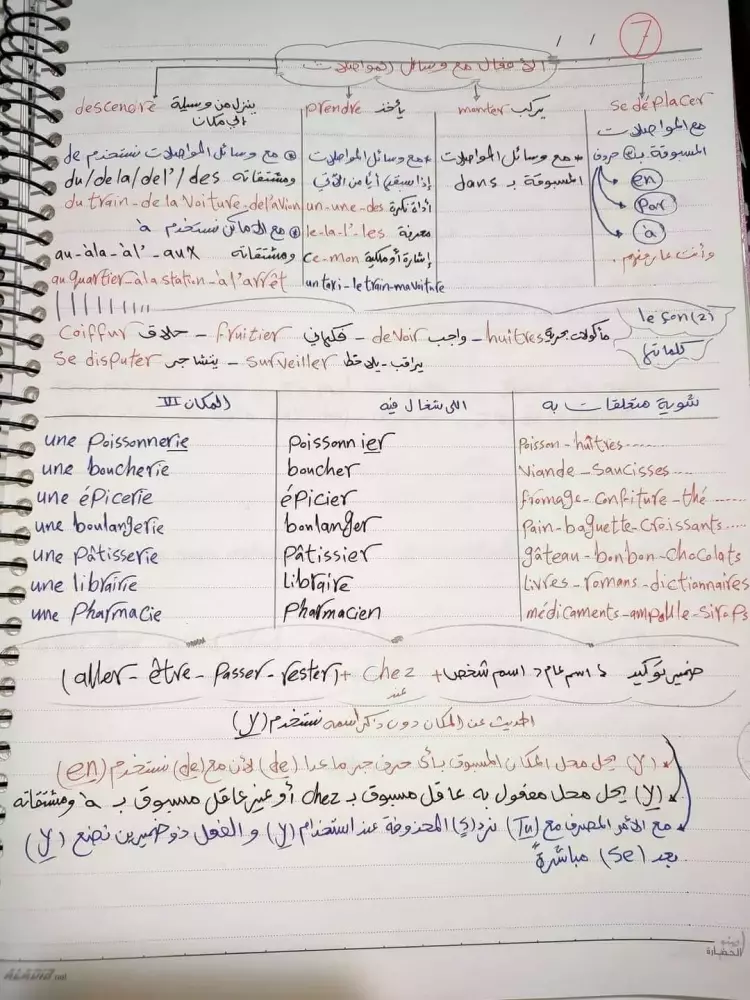 7
/ /
الأفعال مع وسائل المواصلات
se déplacer
مع المواصلات
المسبوقة بـ3 حروف
en
Par
à
وأنت عارفهم.
monter يركب
* مع وسائل المواصلات
المسبوقة بـ dans
prendre يأخذ
* مع وسائل المواصلات
إذا سبقهم أيا من الآتي
أداة نكرة un-une-des
معرفة le-la-l'-les
إشارة أو ملكية ce-mon
un taxi-le train-ma voiture
descendre ينزل من وسيلة
الي مكان
مع وسائل المواصلات نستخدم de
ومشتقاته du/de la/del'/des
du train-de la voiture-de l'avion
مع الأماكن نستخدم à
ومشتقاته au-àla-àl'-aux
au quartier-à la station-à l'arrêt
leçon(2)
كلماتها
مأكولات بحرية huîtres - واجب devoir - فكهاني fruitier - حلاق Coiffur
يراقب-يلاحظ Surveiller - يتشاجر Se disputer
شوية متعلقات به | اللى شغال فيه | المكان
Poisson-huîtres...... | Poissonnier | une Poissonnerie
Viande-Saucisses.... | boucher | une boucherie
fromage-confiture-thé ...... | épicier | une épicerie
Pain-baguette-Croissants.... | boulanger | une boulangerie
gâteau-bonbon-chocolats | Pâtissier | une Pâtisserie
Livres-romans-dictionnaires | Libraire | une librairie
médicaments-ampoule-sirops | Pharmacien | une Pharmacie
(aller-être-Passer-rester)+ chez + اسم شخص د اسم عام د ضمير توكيد
عند
الحديث عن المكان دون ذكر اسمه نستخدم (y)
(y) يحل محل المكان المسبوق بأى حرف جر ماعدا (de) لأن مع (de) نستخدم (en)
(y) يحل محل مفعول به عاقل مسبوق بـ chez أو غير عاقل مسبوق بـ à ومشتقاته
مع الأمر المصرف مع (Tu) نرد (s) المحذوفة عند استخدام (y) و الفعل ذو ضميرين نضع (y)
بعد (se) مباشرةً
الحضارة